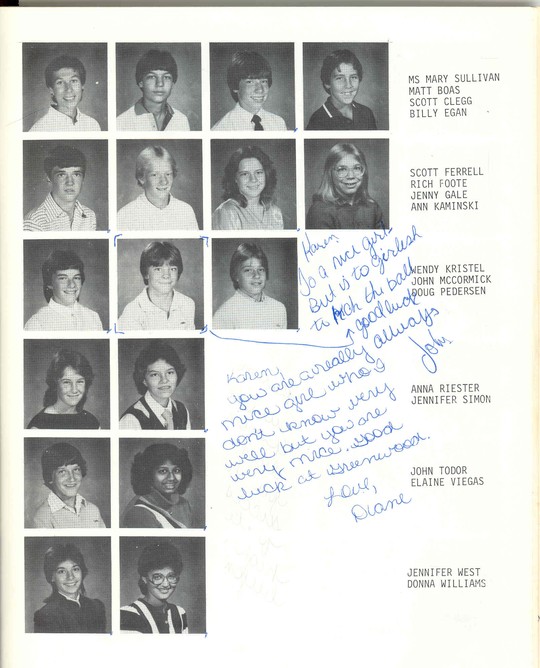 MS MARY SULLIVAN
MATT BOAS
SCOTT CLEGG
BILLY EGAN
SCOTT FERRELL
RICH FOOTE
JENNY GALE
ANN KAMINSKI
WENDY KRISTEL
JOHN MCCORMICK
DOUG PEDERSEN
Karen,
To a nice girl
But is to Girlish
to the ball
good luck
always
John
Karen,
you are a really
nice girl who I
don't know very
well but you are
very nice. Good
luck at Greenwood.
Love,
Diane
ANNA RIESTER
JENNIFER SIMON
JOHN TODOR
ELAINE VIEGAS
JENNIFER WEST
DONNA WILLIAMS